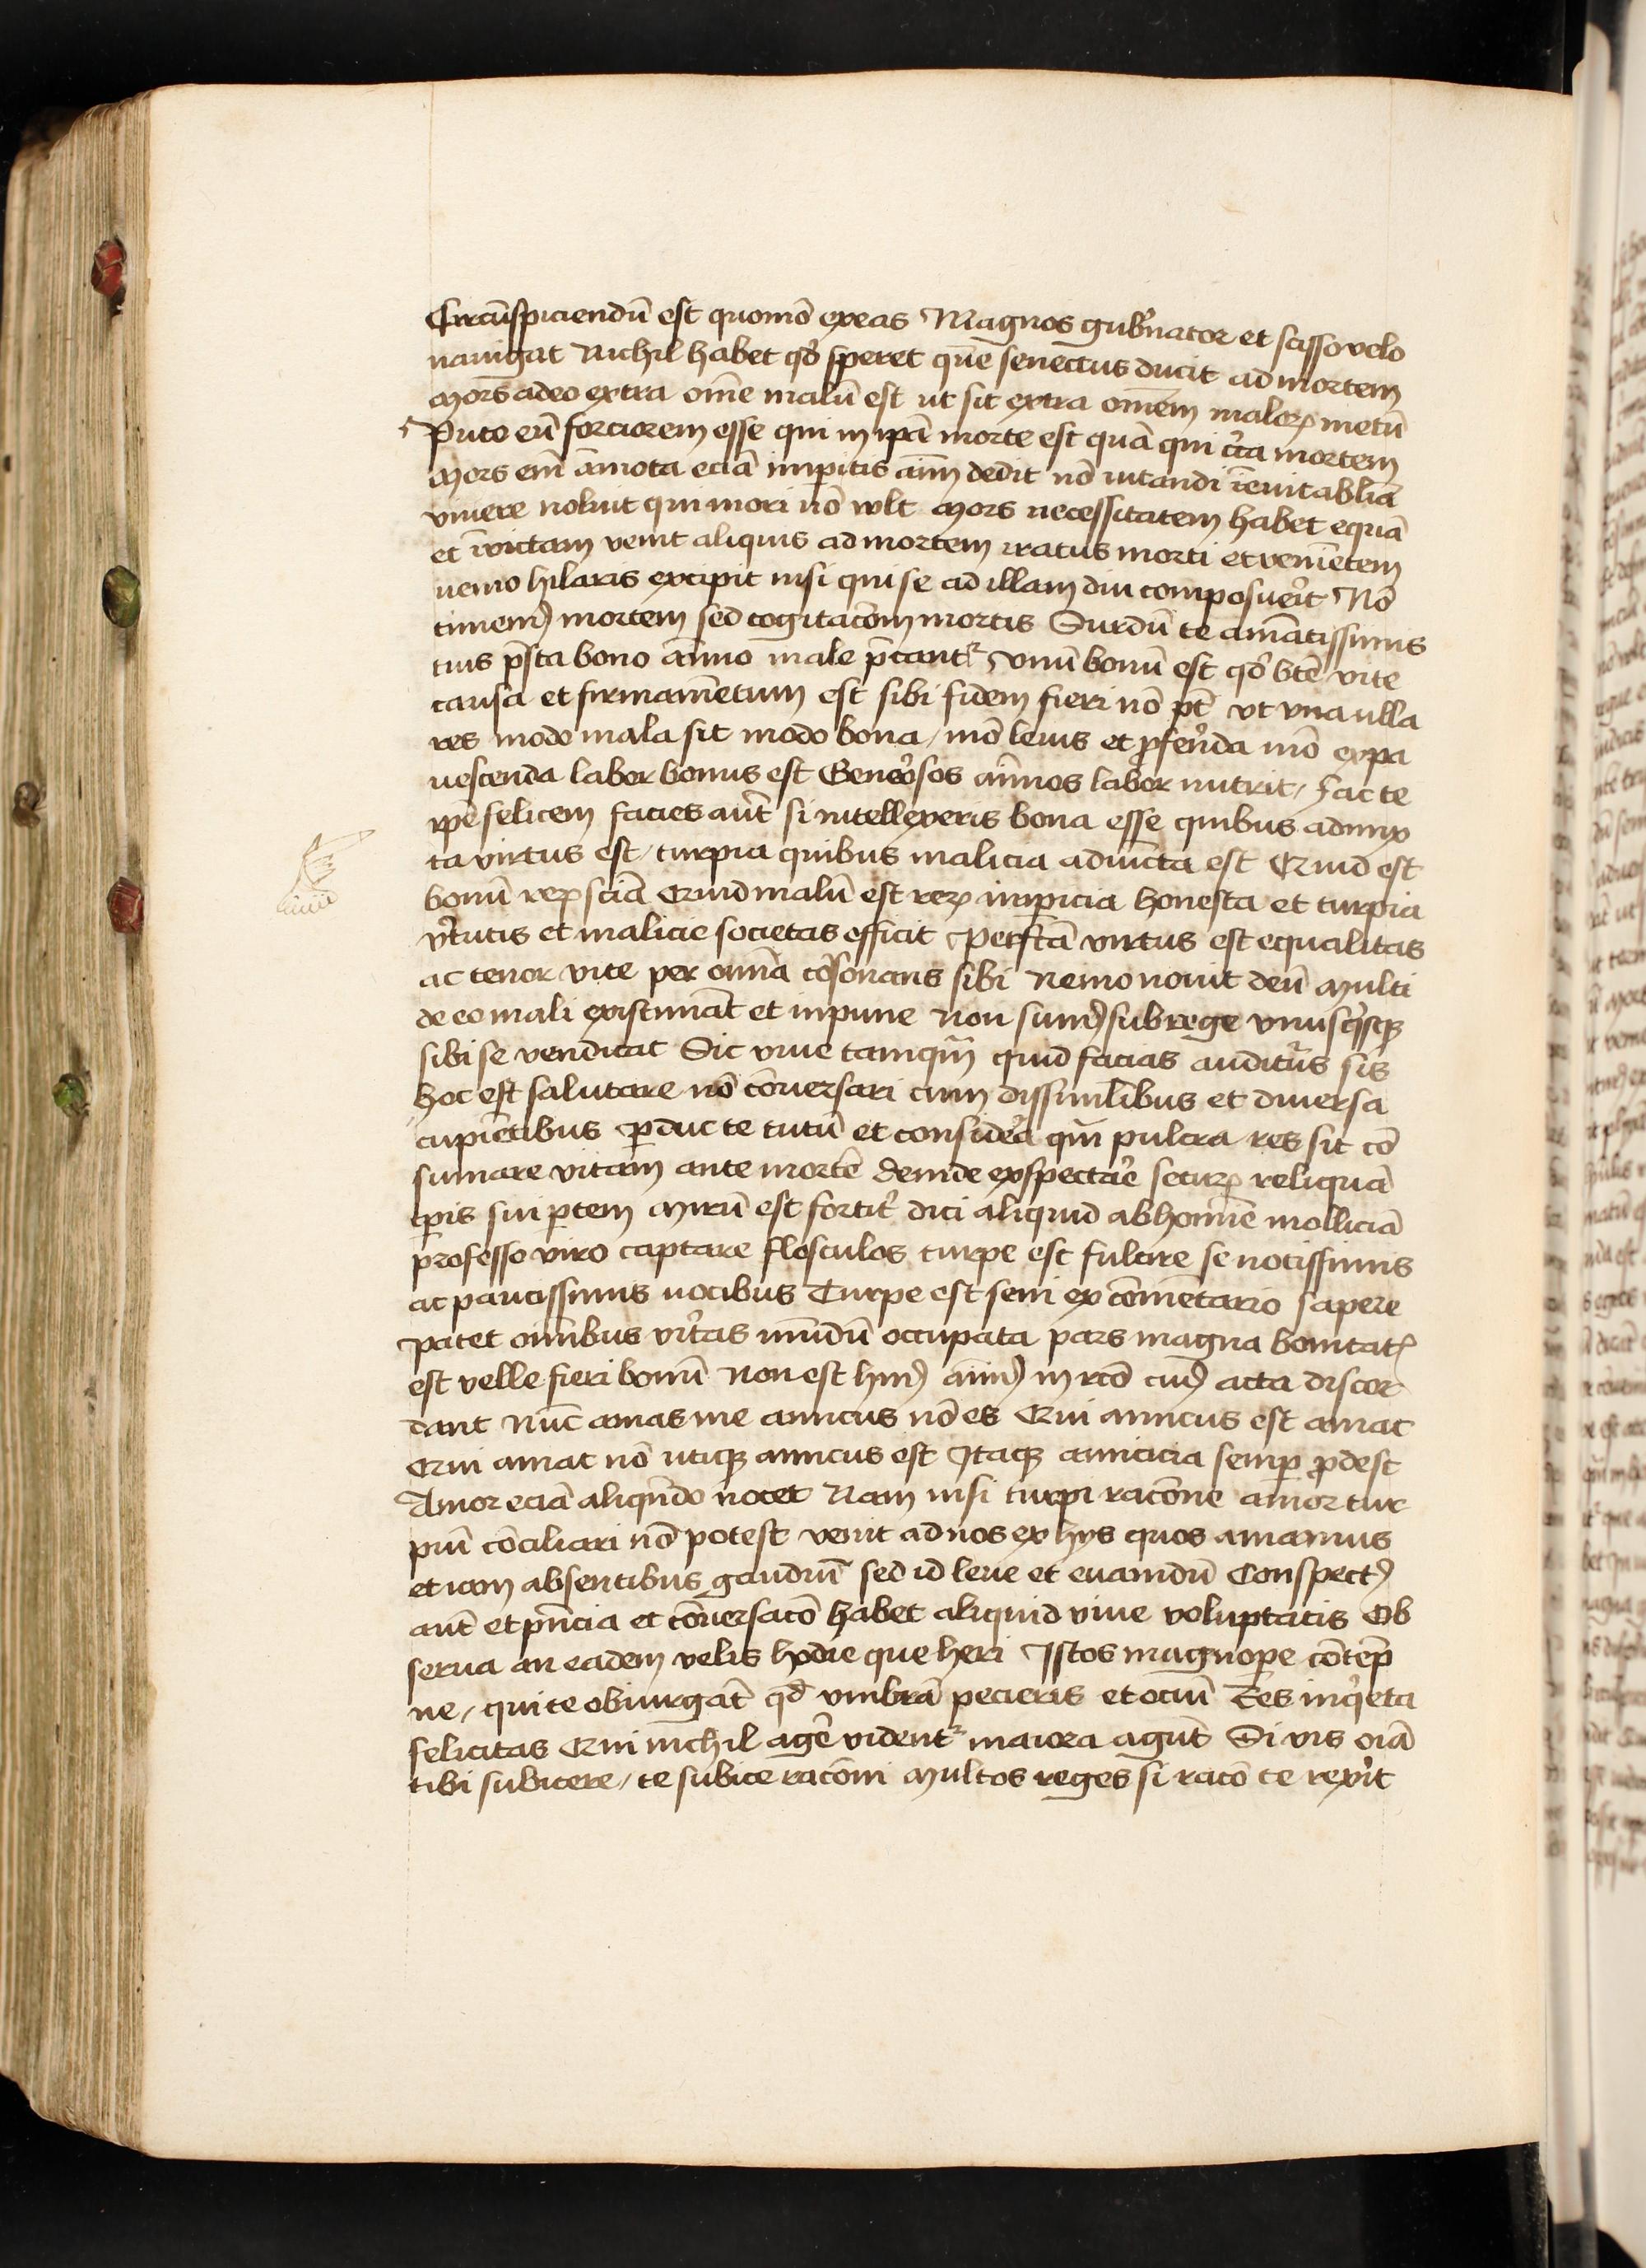 Circūspiciendū est quomō exeas Magnos gub̾nator et scisso velo
nauigat Nichil habet qd̾ speret quē senectus ducit ad mortem
Mors adeo extra om̄e malū est ut sit extra omēm maloꝝ metū
Puto eū forciorem esse qui in ip̄a morte est quā qui c̄ca mortem
Mors em̄ āmota eciā imꝑitis aīm dedit nō uitandi īeuitablia
viuere noluit qui mori nō wlt Mors necessitatem habet equā
et īuictam venit aliquis ad mortem iratus morti et veniētem
nemo hilaris excipit nisi qui se ad illam diu composuer̾it Nō
timemꝰ mortem sed cogitac̄om mortis Surdū te amātissimis
tuis p̄sta bono ānimo male p̄cantᷣ vnū bonū est qd̾ b̄te vite
causa et firmamētum est sibi fidem fieri nō pt̄ vt vna ulla
res modo mala sit modo bona / mō leuis et ꝑfer̾da mō expa
uescenda labor bonus est Gener̾osos aīmos labor nutrit / Fac te
ip̄e felicem facies aut̄ si intellexeris bona esse quibus admix
ta virtus est / turpia quibus malicia adiūcta est Quid est
bonū reꝝ sciā Quid malū est reꝝ imꝑicia honesta et turpia
v̾tutis et malicie societas efficit Perfctā virtus est equalitas
ac tenor vite per omīa cōsonans sibi Nemo nouit deū Multi
de eo mali existimāt et inpune Non sumꝰ sub rege vnusq̾sqꝫ
sibi se vendicat Sic viue tamqm̄ quid facias auditur̾us sis
hoc est salutare nō cōuersari cum dissimilibus et diuersa
cupiētibus ꝓduc te tutū et consider̾a qm̄ pulcra res sit cō
sumare vitam ante mortē deinde exspectar̾e secuꝝ reliquā
tp̄is sui ꝑtem Mirū est fortit̾ dici aliquid ab homīe molliciā
professo viro captare flosculos turpe est fulcire se notissimis
ac paucissimis vocibus Turpe est seni ex cōmētario sapere
patet omībus vr̾itas nundū occupata pars magna bonitatꝭ
est velle fieri bonū Non est hūꝰ aīmꝰ in rc̄o cuiꝰ acta discor
dant Nūc amas me amicus nō es Qui amicus est amat
Qui amat nō utiqꝫ amicus est Itaqꝫ amicicia semꝑ ꝓdest
Amor eciā aliqn̄do nocet Nam nisi turpi rac̄one amor tur
piū cōciliari nō potest venit ad nos ex hijs quos amamus
eciam absentibus gaudiū sed id leue et euanidū Conspectꝰ
aut̄ et p̄ncia et cōuersac̄o habet aliquid viue voluptatis Ob
serua an eadem velis hodie que heri Istos magnoꝑe cōtēp
ne / qui te obiurgāt qd̄ vmbrā pecieris et ociū Res inq̾eta
felicitas Qui nichil ager̾e videntᷣ maiora agūt Si vis oīa
tibi subicere / te subice rac̄oni Multos reges si rac̄o te rexer̾it